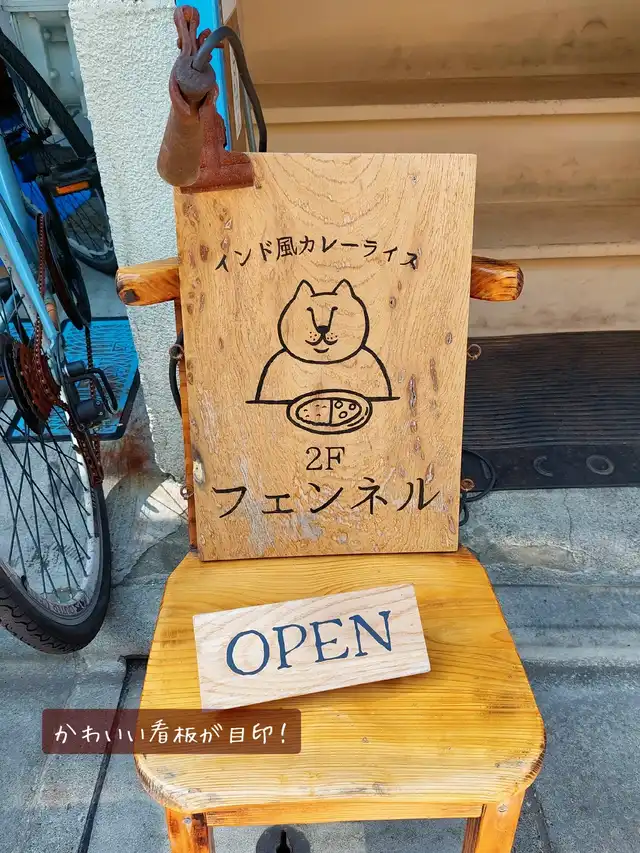 インド風カレーライス
2F
フェンネル
OPEN
かわいい看板が目印!